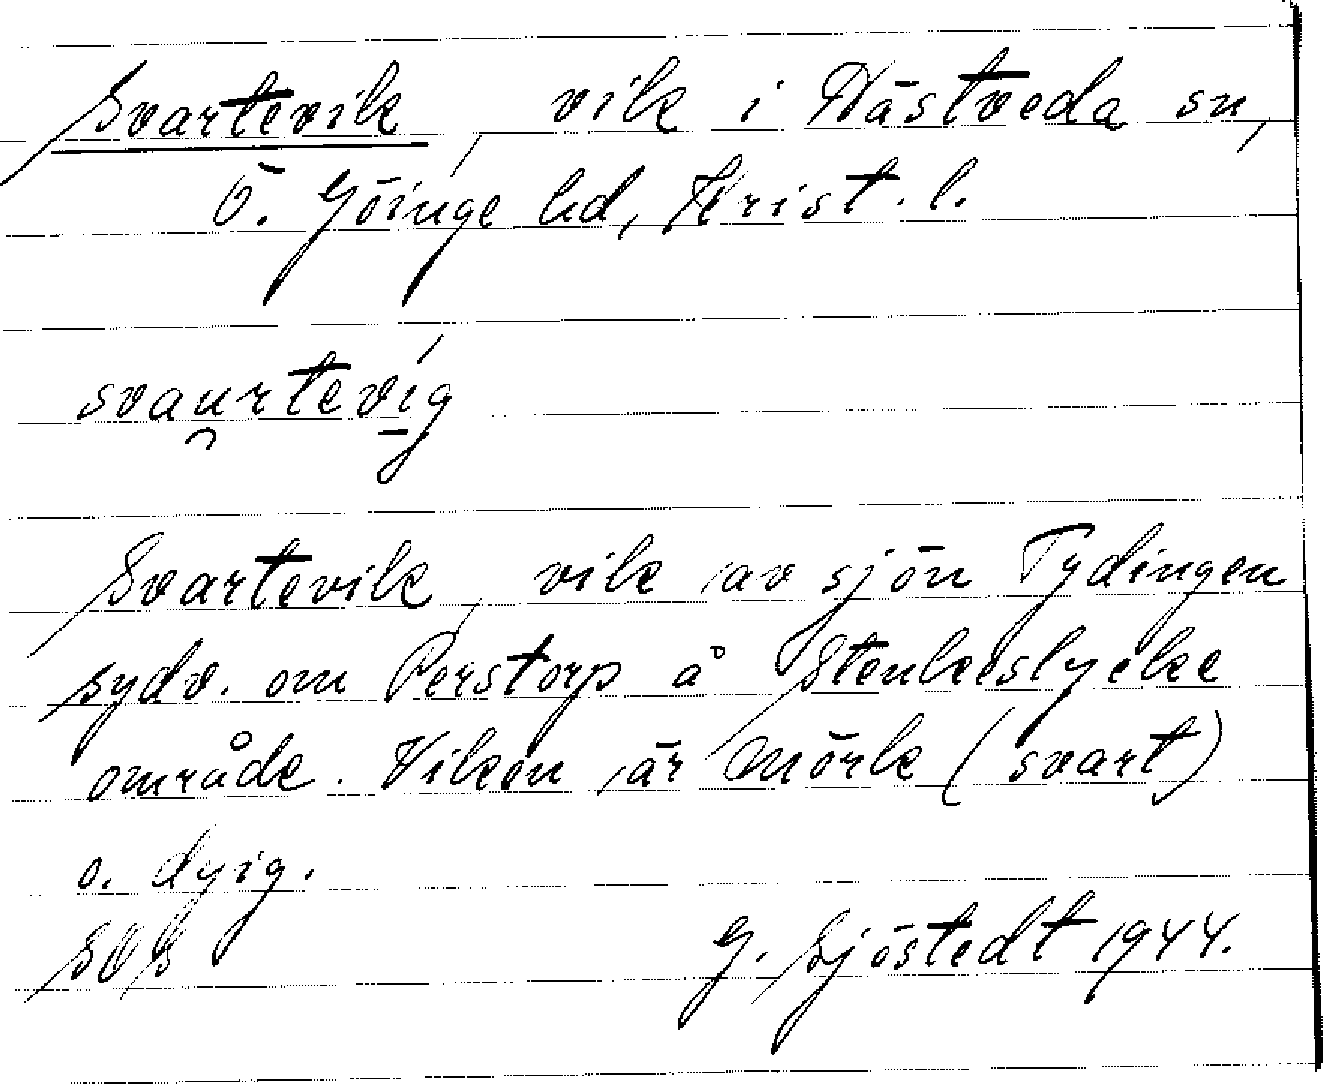 Svartevik, vik i Nästveda sn,
Ö. Göinge hd, Krist. l.
svau̯rtevíg
Svartevik, vik av sjön Tydingen
sydv. om Perstorp å
område. Viken är mörk (svart)
o. dyig.
SOS G. Sjöstedt 1944.